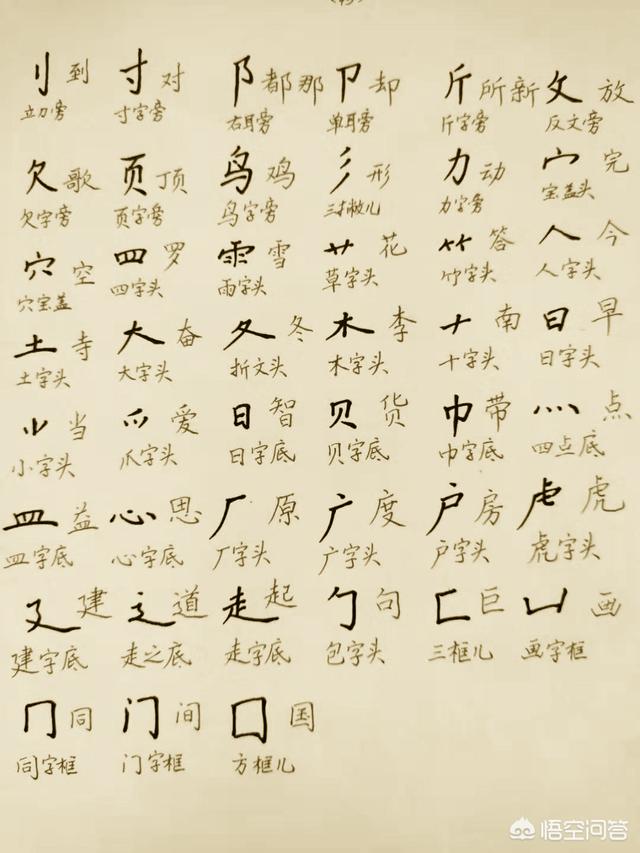 刂到 寸对 阝都那 卩却 斤所新 攵放
立刀旁 寸字旁 右耳旁 单耳旁 斤字旁 反文旁
欠歌 页顶 鸟鸡 彡形 力动 宀完
欠字旁 页字旁 鸟字旁 三撇儿 力字旁 宝盖头
穴空 罒罗 雨雪 艹花 ⺮答 人今
穴宝盖 四字头 雨字头 草字头 竹字头 人字头
土寺 大奋 夂冬 木李 十南 日早
土字头 大字头 折文头 木字头 十字头 日字头
⺌当 爫爱 日智 贝货 巾带 灬点
小字头 爪字头 日字底 贝字底 巾字底 四点底
皿益 心思 厂原 广度 户房 虍虎
皿字底 心字底 厂字头 广字头 户字头 虎字头
廴建 辶道 走起 勹句 匚巨 凵画
建字底 走之底 走字底 包字头 三框儿 画字框
冂同 门间 囗国
同字框 门字框 方框儿
悟空问答